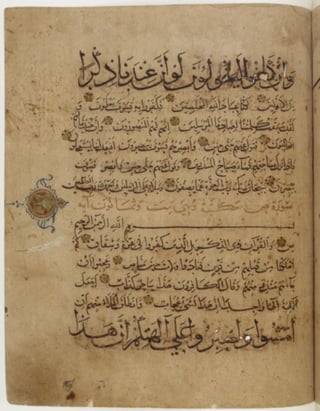 وان كانوا ليقولون لو ان عندنا ذكرا
من الاولين لكنا عباد الله المخلصين فكفروا به فسوف يعلمون و
لقد سبقت كلمتنا لعبادنا المرسلين انهم لهم المنصورون وان جندنا لهم
الغالبون فتول عنهم حتى حين وابصرهم فسوف يبصرون افبعذابنا يستعجلون
فاذا نزل بساحتهم فساء صباح المنذرين وتول عنهم حتى حين وابصر فسوف
يبصرون سبحان ربك رب العزة عما يصفون وسلام على المرسلين والحمد لله رب العالمين
سورة ص مكية وهي ست وثمانون آية
بسم الله الرحمن الرحيم
ص والقرآن ذي الذكر بل الذين كفروا في عزة وشقاق كم
اهلكنا من قبلهم من قرن فنادوا ولات حين مناص وعجبوا ان
جاءهم منذر منهم وقال الكافرون هذا ساحر كذاب اجعل
الالهة الها واحدا ان هذا لشيء عجاب وانطلق الملا منهم ان
امشوا واصبروا على الهتكم ان هذا